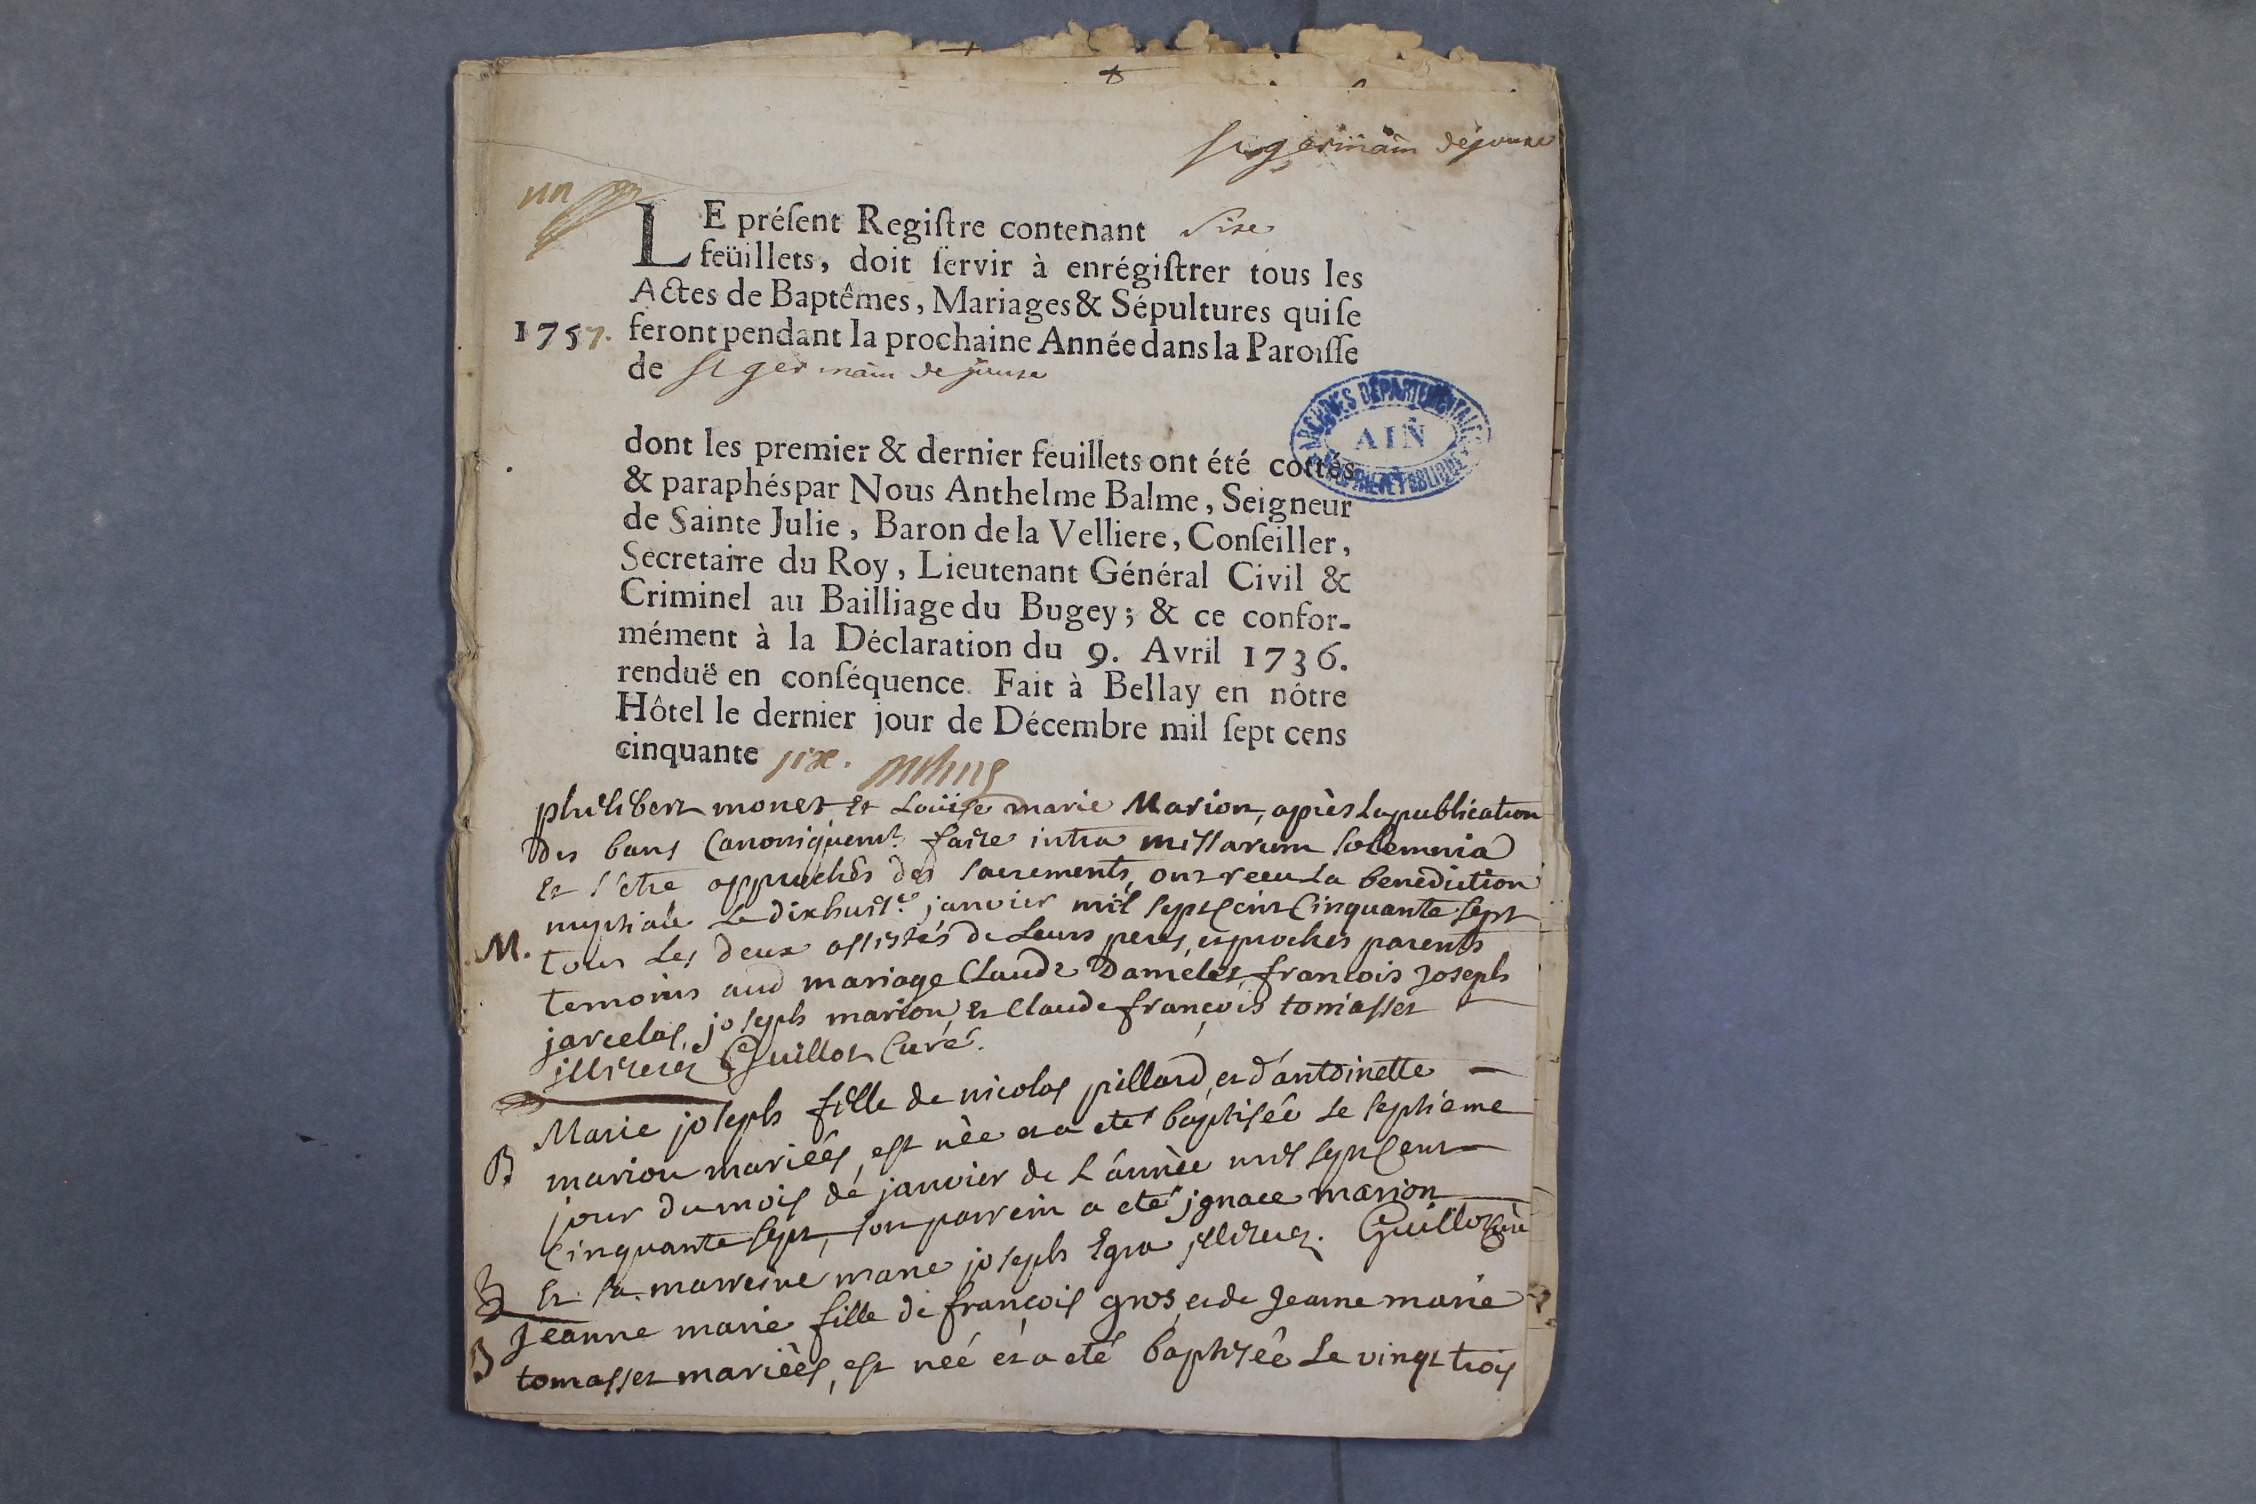 st germain dejoune
un
LE préſent Regiſtre contenant Sixe
feüillets, doit ſervir à enrégiſtrer tous les
Actes de Baptêmes, Mariages & Sépultures qui ſe
1757. feront pendant la prochaine Année dans la Paroiſſe
de st germain de joune
ARCHIVES DÉPARTEMENTALES
AIN
dont les premier & dernier feuillets ont été cottés
& paraphés par Nous Anthelme Balme, Seigneur
de Sainte Julie, Baron de la Velliere, Conſeiller,
Secretaire du Roy, Lieutenant Général Civil &
Criminel au Bailliage du Bugey; & ce confor-
mément à la Déclaration du 9. Avril 1736.
renduë en conſéquence. Fait à Bellay en nôtre
Hôtel le dernier jour de Décembre mil ſept cens
cinquante six.
philibert monet et Loüise marie Marion, après la publication
des bans Canoniquemt. faite intra missarum solemnia
et s'etre approchés des sacrements, ont receu la benediction
nuptiale le dixhuite. janvier mil sept cent cinquante sept
M. tous les deux assistés de leurs peres, et proches parents
temoins aud mariage Claude Damelet, francois joseph
jarcelas, joseph marion et Claude françois tomasset
illiterez Guillot Curé.
Marie joseph fille de nicolas pillard, et d'antoinette
B marion mariéés, est née et a eté baptisée le septieme
jour du mois de janvier de l'année mil sept cent
cinquante sept, son parrein a eté ignace marion
et sa marreine marie joseph Egra illiterez. Guillot curé
Jeanne marie fille de françois gros, et de Jeanne marie
B tomasset mariéés, est néé et a eté baptisée le vingt trois